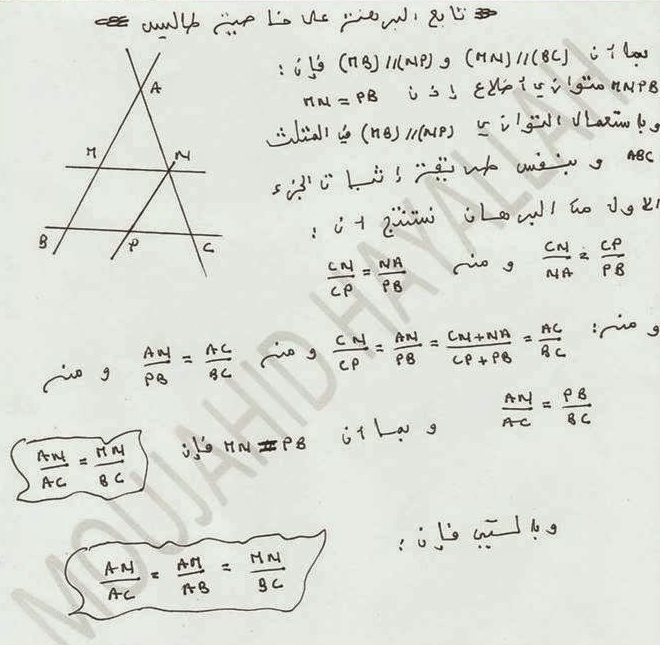 تابع البرهنة على خاصية طاليس
بما أن (MN)//(BC) و (MB)//(NP) فإن :
MNPB متوازي أضلاع إذن MN = PB
وباستعمال التوازي (MB)//(NP) في المثلث
ABC وبنفس طريقة إثبات الجزء
الأول من البرهان نستنتج أن :
CN/NA = CP/PB ومنه CN/CP = NA/PB
ومنه : CN/CP = AN/PB = CN+NA/CP+PB = AC/BC ومنه AN/PB = AC/BC ومنه
AN/AC = PB/BC
وبما أن MN = PB فإن AN/AC = MN/BC
وبالتالي فإن :
AN/AC = AM/AB = MN/BC
A
M
N
B
P
C
MOUJAHID HAYALLAH